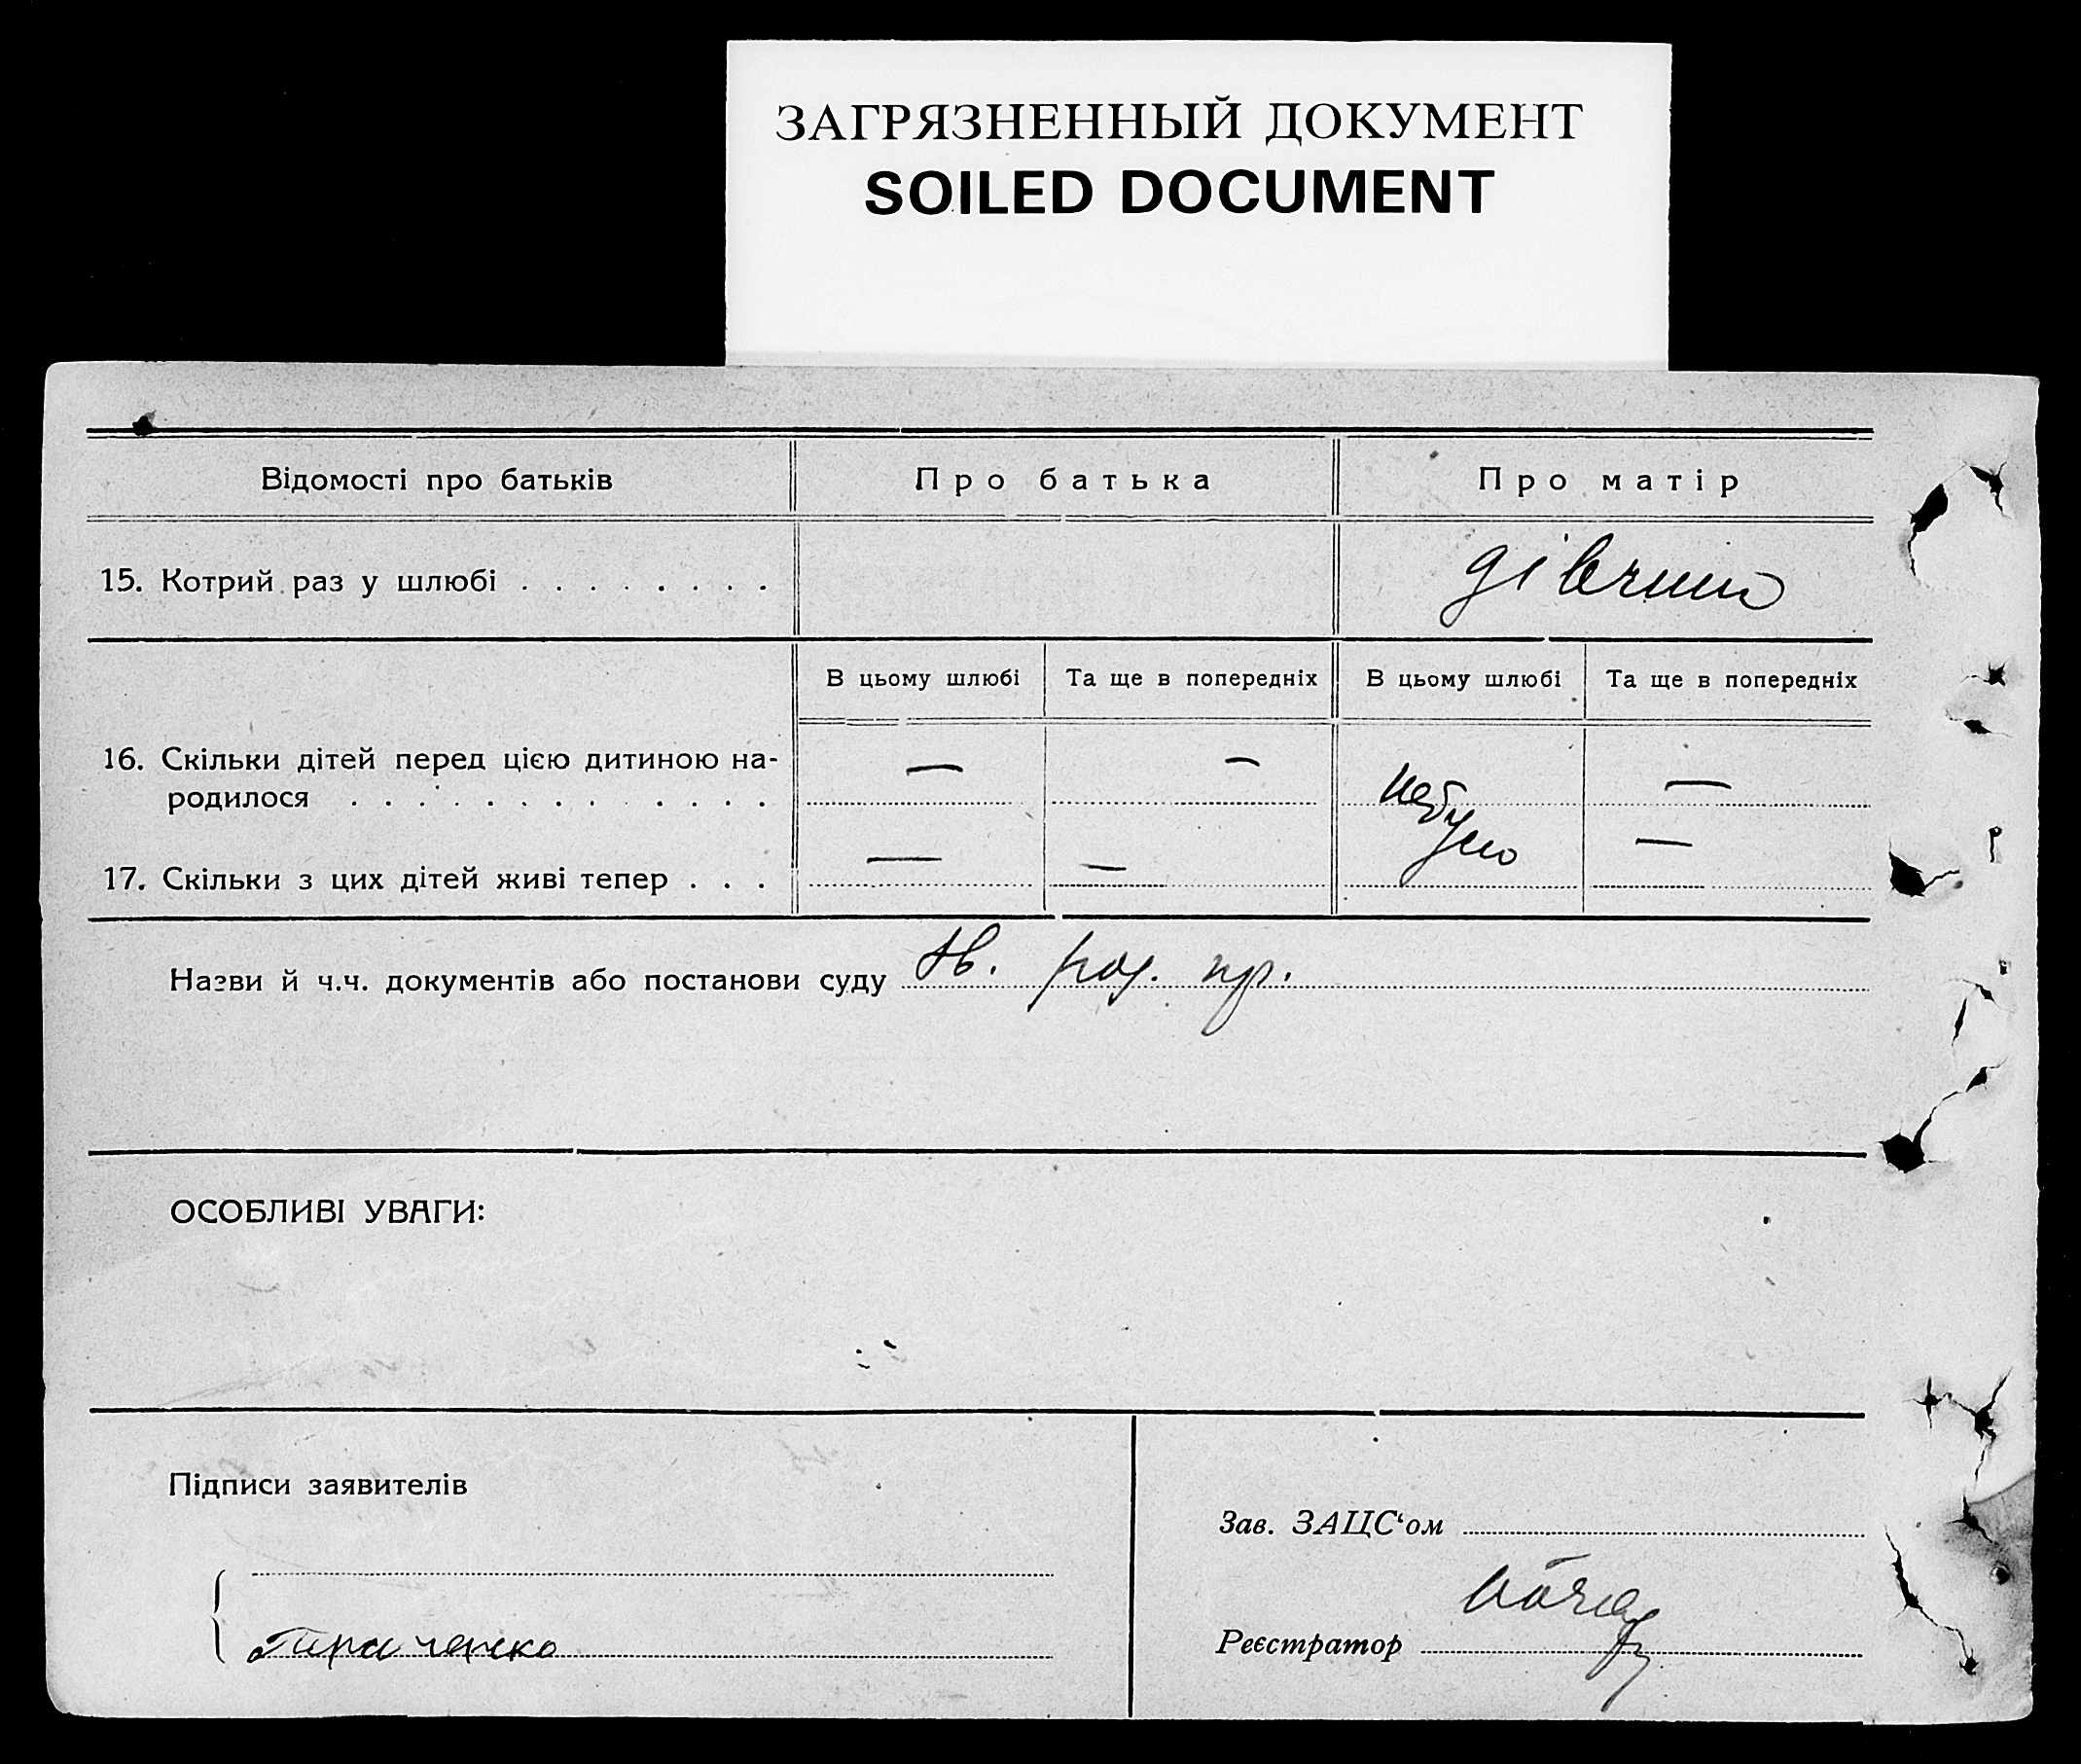 ЗАГРЯЗНЕННЫЙ ДОКУМЕНТ
SOILED DOCUMENT
Відомості про батьків
Про батька
Про матір
15. Котрий раз у шлюбі . . . . . . . .
дівчино
В цьому шлюбі
Та ще в попередніх
В цьому шлюбі
Та ще в попередніх
16. Скільки дітей перед цією дитиною на-
родилося . . . . . . . . . . . . .
— — — 
небуло
17. Скільки з цих дітей живі тепер . . .
— — —
Назви й ч.ч. документів або постанови суду
род. пр.
ОСОБЛИВІ УВАГИ:
Підписи заявителів
Зав. ЗАЦС‘ом
Реєстратор